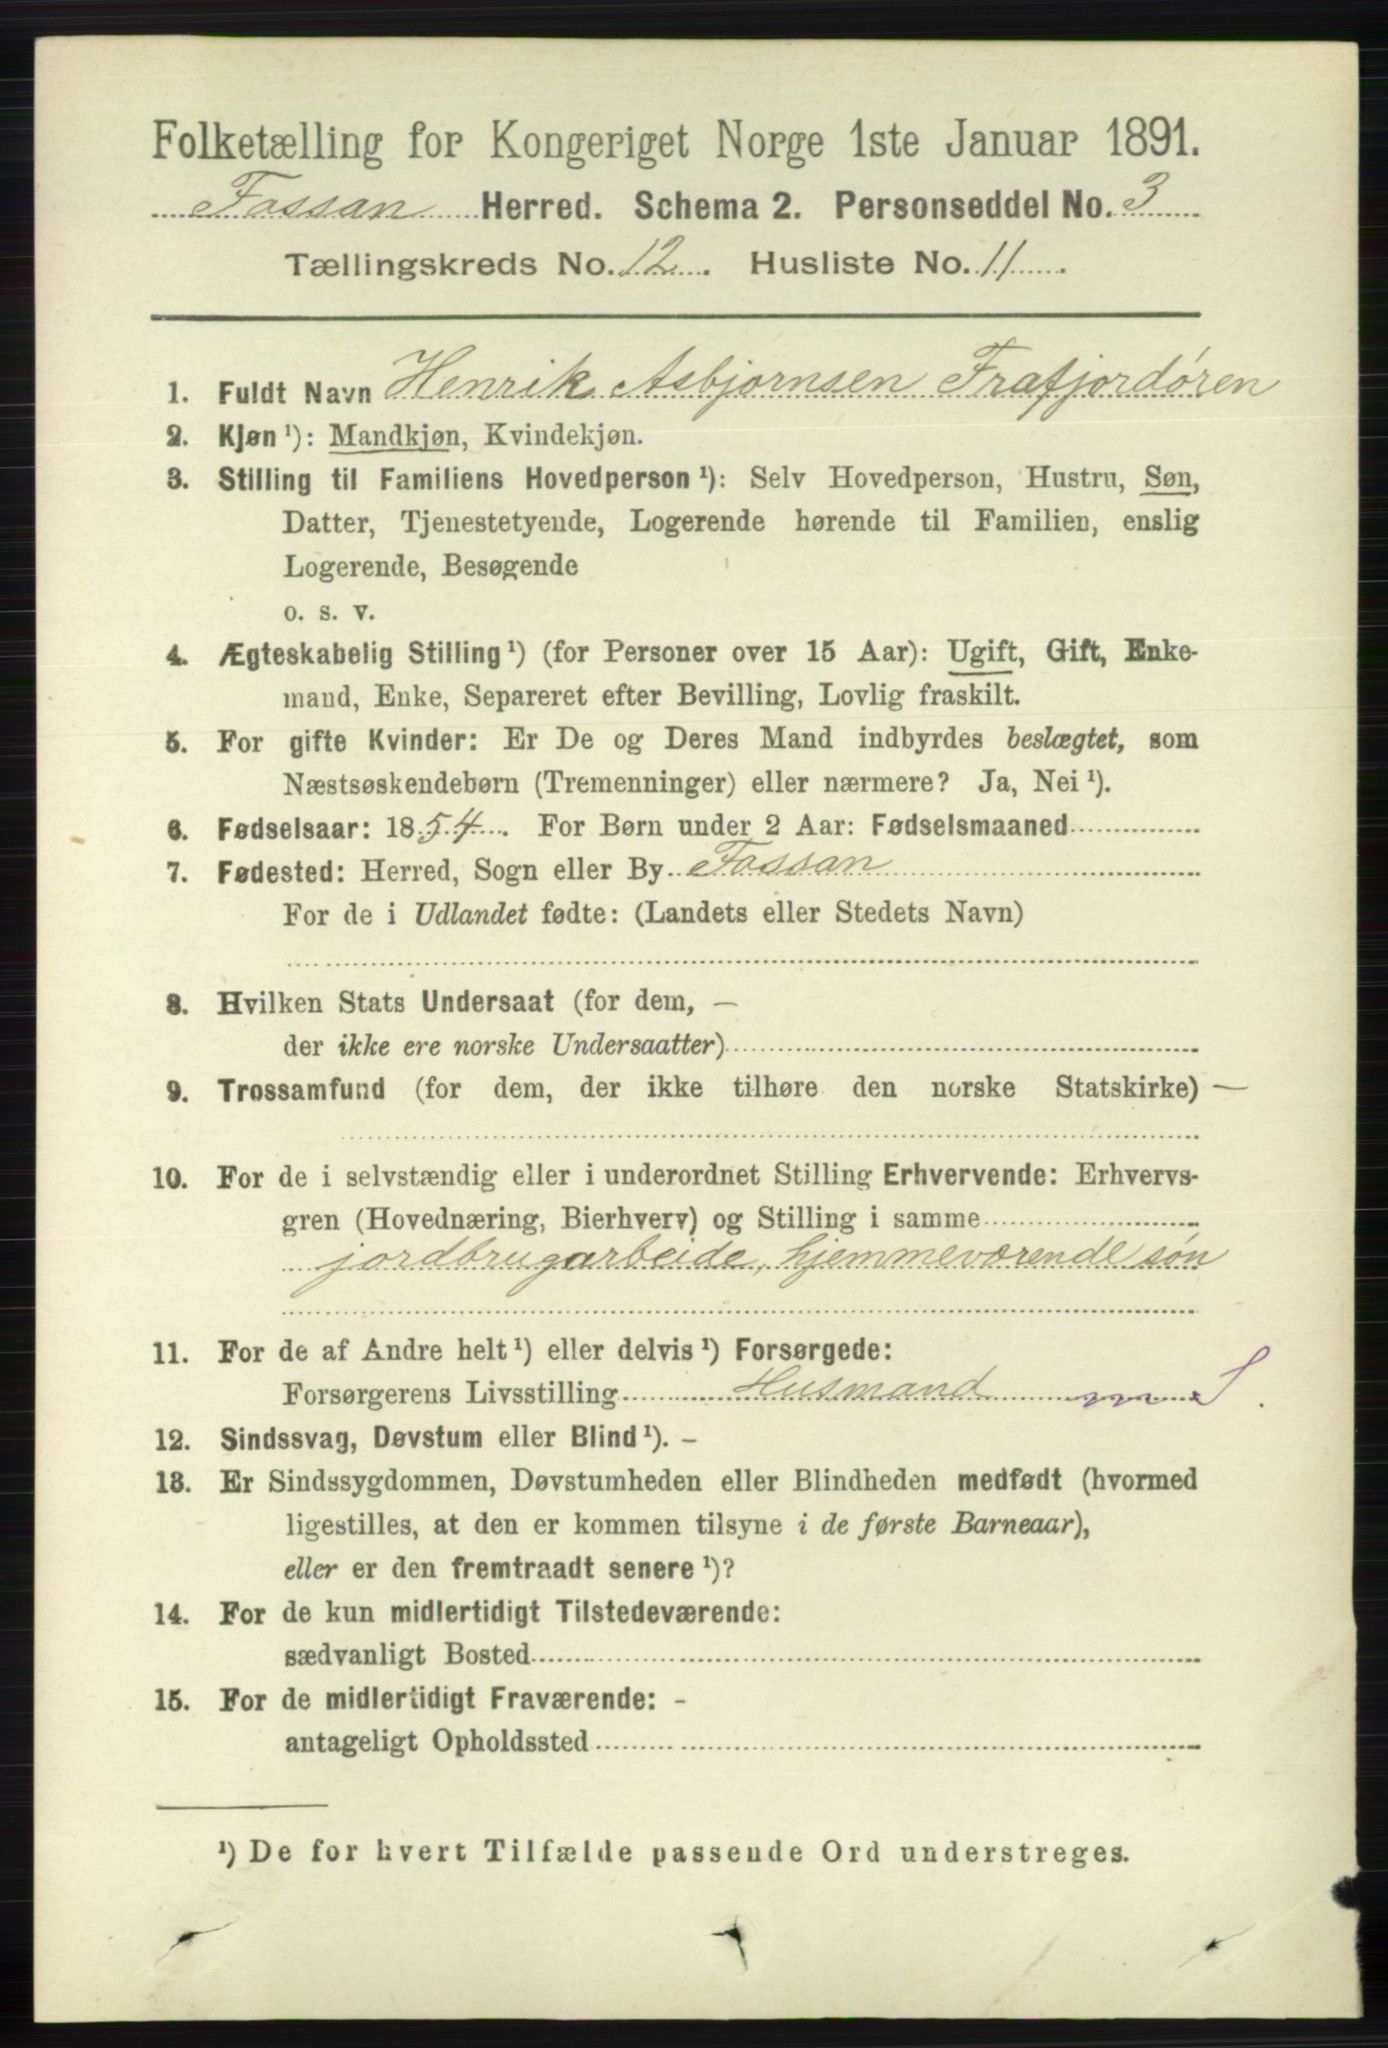 Folketælling for Kongeriget Norge 1ste Januar 1891.
Fossan Herred. Schema 2. Personseddel No. 3
Tællingskreds No. 12. Husliste No. 11.
1. Fuldt Navn Henrik Asbjornsen Frafjordøren
2. Kjøn ¹): Mandkjøn, Kvindekjøn.
3. Stilling til Familiens Hovedperson ¹): Selv Hovedperson, Hustru, Søn,
Datter, Tjenestetyende, Logerende hørende til Familien, enslig
Logerende, Besøgende
o. s. v.
4. Ægteskabelig Stilling ¹) (for Personer over 15 Aar): Ugift, Gift, Enke-
mand, Enke, Separeret efter Bevilling, Lovlig fraskilt.
5. For gifte Kvinder: Er De og Deres Mand indbyrdes beslægtet, som
Næstsøskendebørn (Tremenninger) eller nærmere? Ja, Nei ¹).
6. Fødselsaar: 1854. For Børn under 2 Aar: Fødselsmaaned
7. Fødested: Herred, Sogn eller By Fossan
For de i Udlandet fødte: (Landets eller Stedets Navn)
8. Hvilken Stats Undersaat (for dem, —
der ikke ere norske Undersaatter)
9. Trossamfund (for dem, der ikke tilhøre den norske Statskirke) —
10. For de i selvstændig eller i underordnet Stilling Erhvervende: Erhvervs-
gren (Hovednæring, Bierhverv) og Stilling i samme
jordbrugarbeide, hjemmeværende søn
11. For de af Andre helt ¹) eller delvis ¹) Forsørgede:
Forsørgerens Livsstilling Husmand m S.
12. Sindssvag, Døvstum eller Blind ¹). -
13. Er Sindssygdommen, Døvstumheden eller Blindheden medfødt (hvormed
ligestilles, at den er kommen tilsyne i de første Barneaar),
eller er den fremtraadt senere ¹)?
14. For de kun midlertidigt Tilstedeværende:
sædvanligt Bosted
15. For de midlertidigt Fraværende: -
antageligt Opholdssted
¹) De for hvert Tilfælde passende Ord understreges.